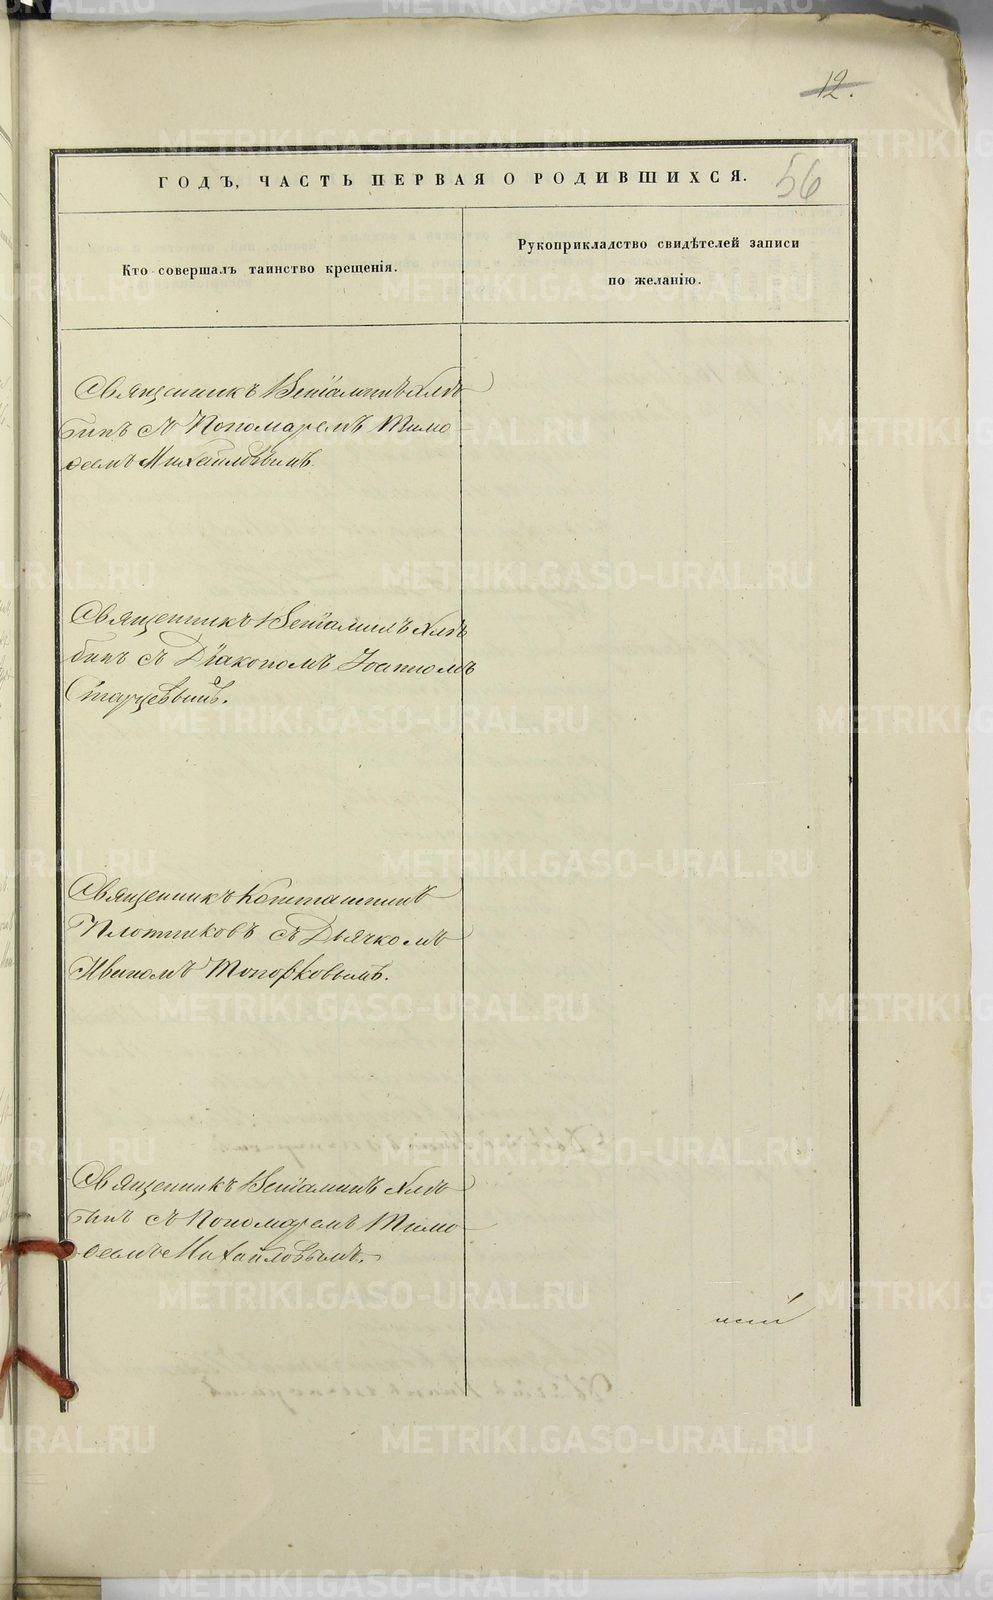 12.
56
ГОДЪ, ЧАСТЬ ПЕРВАЯ О РОДИВШИХСЯ.
Кто совершалъ таинство крещенія.
Рукоприкладство свидѣтелей записи
по желанію.
Священникъ Веніаминъ Хлѣ-
бинъ съ Пономаремъ Тимо-
ѳеемъ Михайловымъ.
Священникъ Веніаминъ Хлѣ-
бинъ съ Діакономъ Іоанномъ
Старцевымъ.
Священникъ Константинъ
Плотниковъ съ Дьячкомъ
Иваномъ Топорковымъ.
Священникъ Веніаминъ Хлѣ-
бинъ съ Пономаремъ Тимо-
ѳеемъ Михайловымъ.
METRIKI.GASO-URAL.RU